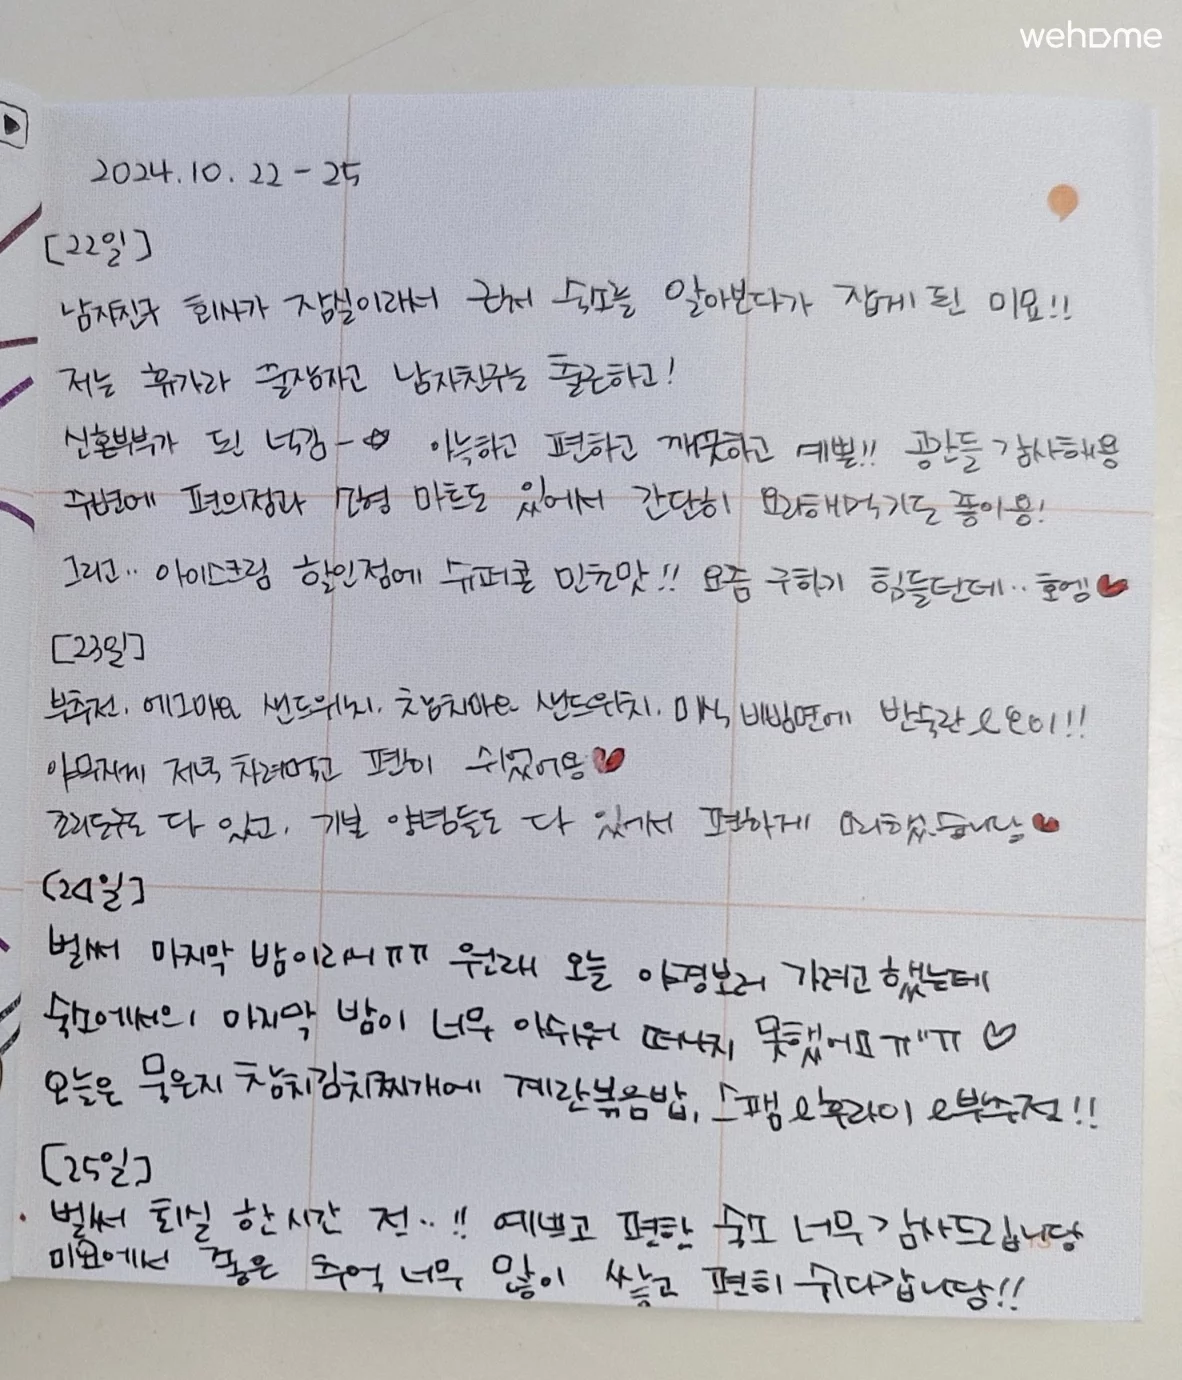 wehome
2024.10.22-25
[22일]
남자친구 회사가 잠실이라서 근처 숙소를 알아보다가 잡게 된 미요!!
저는 휴가라 꿀잠자고 남자친구는 출근하고!
신혼부부가 된 너낌- 아늑하고 편하고 깨끗하고 예쁜!! 공간들 감사해용
주변에 편의점과 대형 마트도 있어서 간단히 요리해먹기도 좋아용!
그리고.. 아이스크림 할인점에 슈퍼콘 민초맛!! 요즘 구하기 힘들던데.. 호엥♥
[23일]
부추전, 에그마요 샌드위치, 참치마요 샌드위치, 비빔면에 반숙란 오이!!
야무지게 저녁 차려먹고 편히 쉬었어용♥
조리도구도 다 있고, 기본 양념들도 다 있어서 편하게 요리했습니당♥
[24일]
벌써 마지막 밤이라서ㅠㅠ 원래 오늘 야경보러 가려고 했는데
숙소에서의 마지막 밤이 너무 아쉬워 떠나지 못했어요ㅠ"ㅠ ♡
오늘은 묵은지 참치김치찌개에 계란볶음밥, 스팸 후라이 부추전!!
[25일]
벌써 퇴실 한시간 전..!! 예쁘고 편한 숙소 너무 감사드립니당
미요에서 좋은 추억 너무 많이 쌓고 편히 쉬다갑니당!!